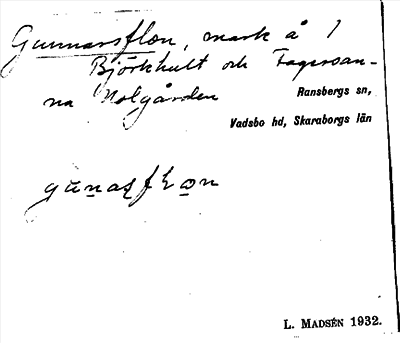 Gunnarsflon, mark å 1
Björkhult och Fagerсan-
na Nolgården
Ransbergs sn,
Vadsbo hd, Skaraborgs län
L. MADSÉN 1932.